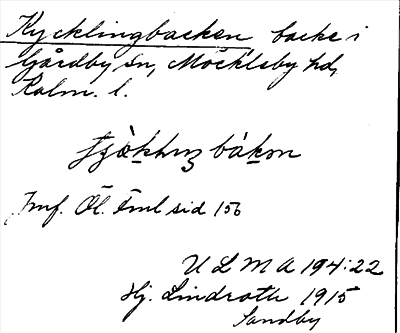 Kycklingbacken backe i
Gårdby sn, Möckleby hd,
Kalm. l.
bàkən
Jmf. Öl. Fml sid 156
ULMA 194:22
Hj. Lindroth 1915
Sandby